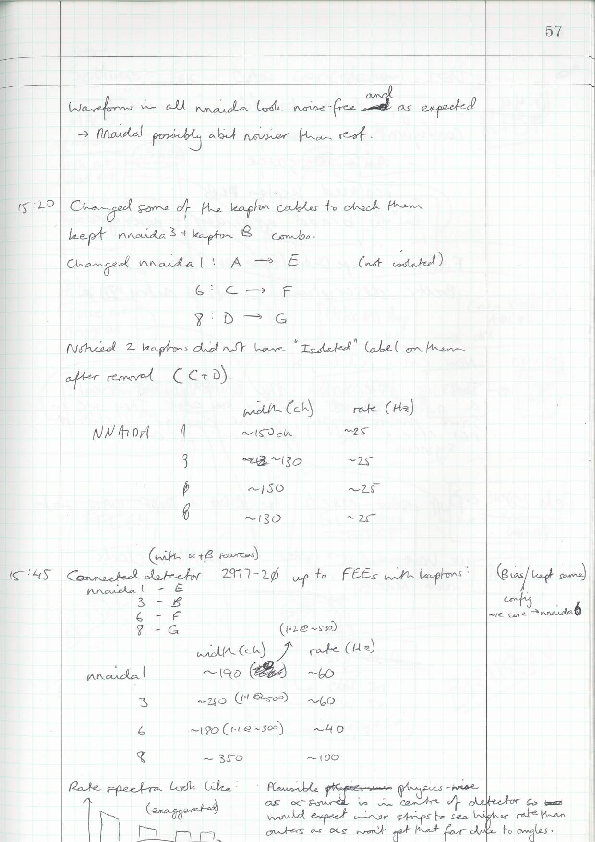 57
Waveforms in all nnaida look noise-free and as expected
→ nnaida1 possibly a bit noisier than rest.
15:20 Changed some of the kapton cables to check them
kept nnaida3 + kapton B combo.
Changed nnaida1: A → E (not isolated)
6: C → F
8: D → G
Noticed 2 kaptons did not have "Isolated" label on them
after removal (C+D).
width (ch) rate (Hz)
NNAIDA 1 ~150ch ~25
3 ~130 ~25
6 ~130 ~25
8 ~130 ~25
(with α+β sources)
15:45 Connected detector 2977-20 up to FEEs with kaptons: (Bias/kept same)
nnaida1 - E config
3 - B -ve core → nnaida6
6 - F
8 - G
(1.2 @ ~550)
width (ch) rate (Hz)
nnaida1 ~190 ~60
3 ~250 (1.1 @ ~500) ~60
6 ~180 (1.1 @ ~500) ~40
8 ~350 ~100
Rate spectra look like: Plausible physics-wise
(exaggerated) as α source is in centre of detector so
would expect inner strips to see higher rate than
outers as αs won't get that far due to angles.